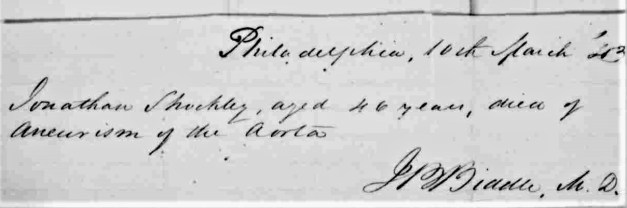 Philadelphia, 10th March
Jonathan Shockley, aged 46 years, died of
Aneurism of the Aorta
J B Biddle, M. D.